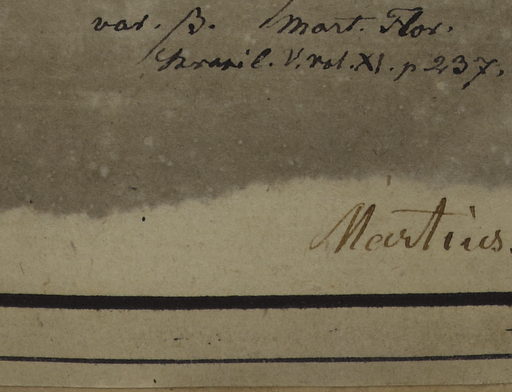 var. β. Mart. Flor.
V. vol. XI. p 237.
Martius.